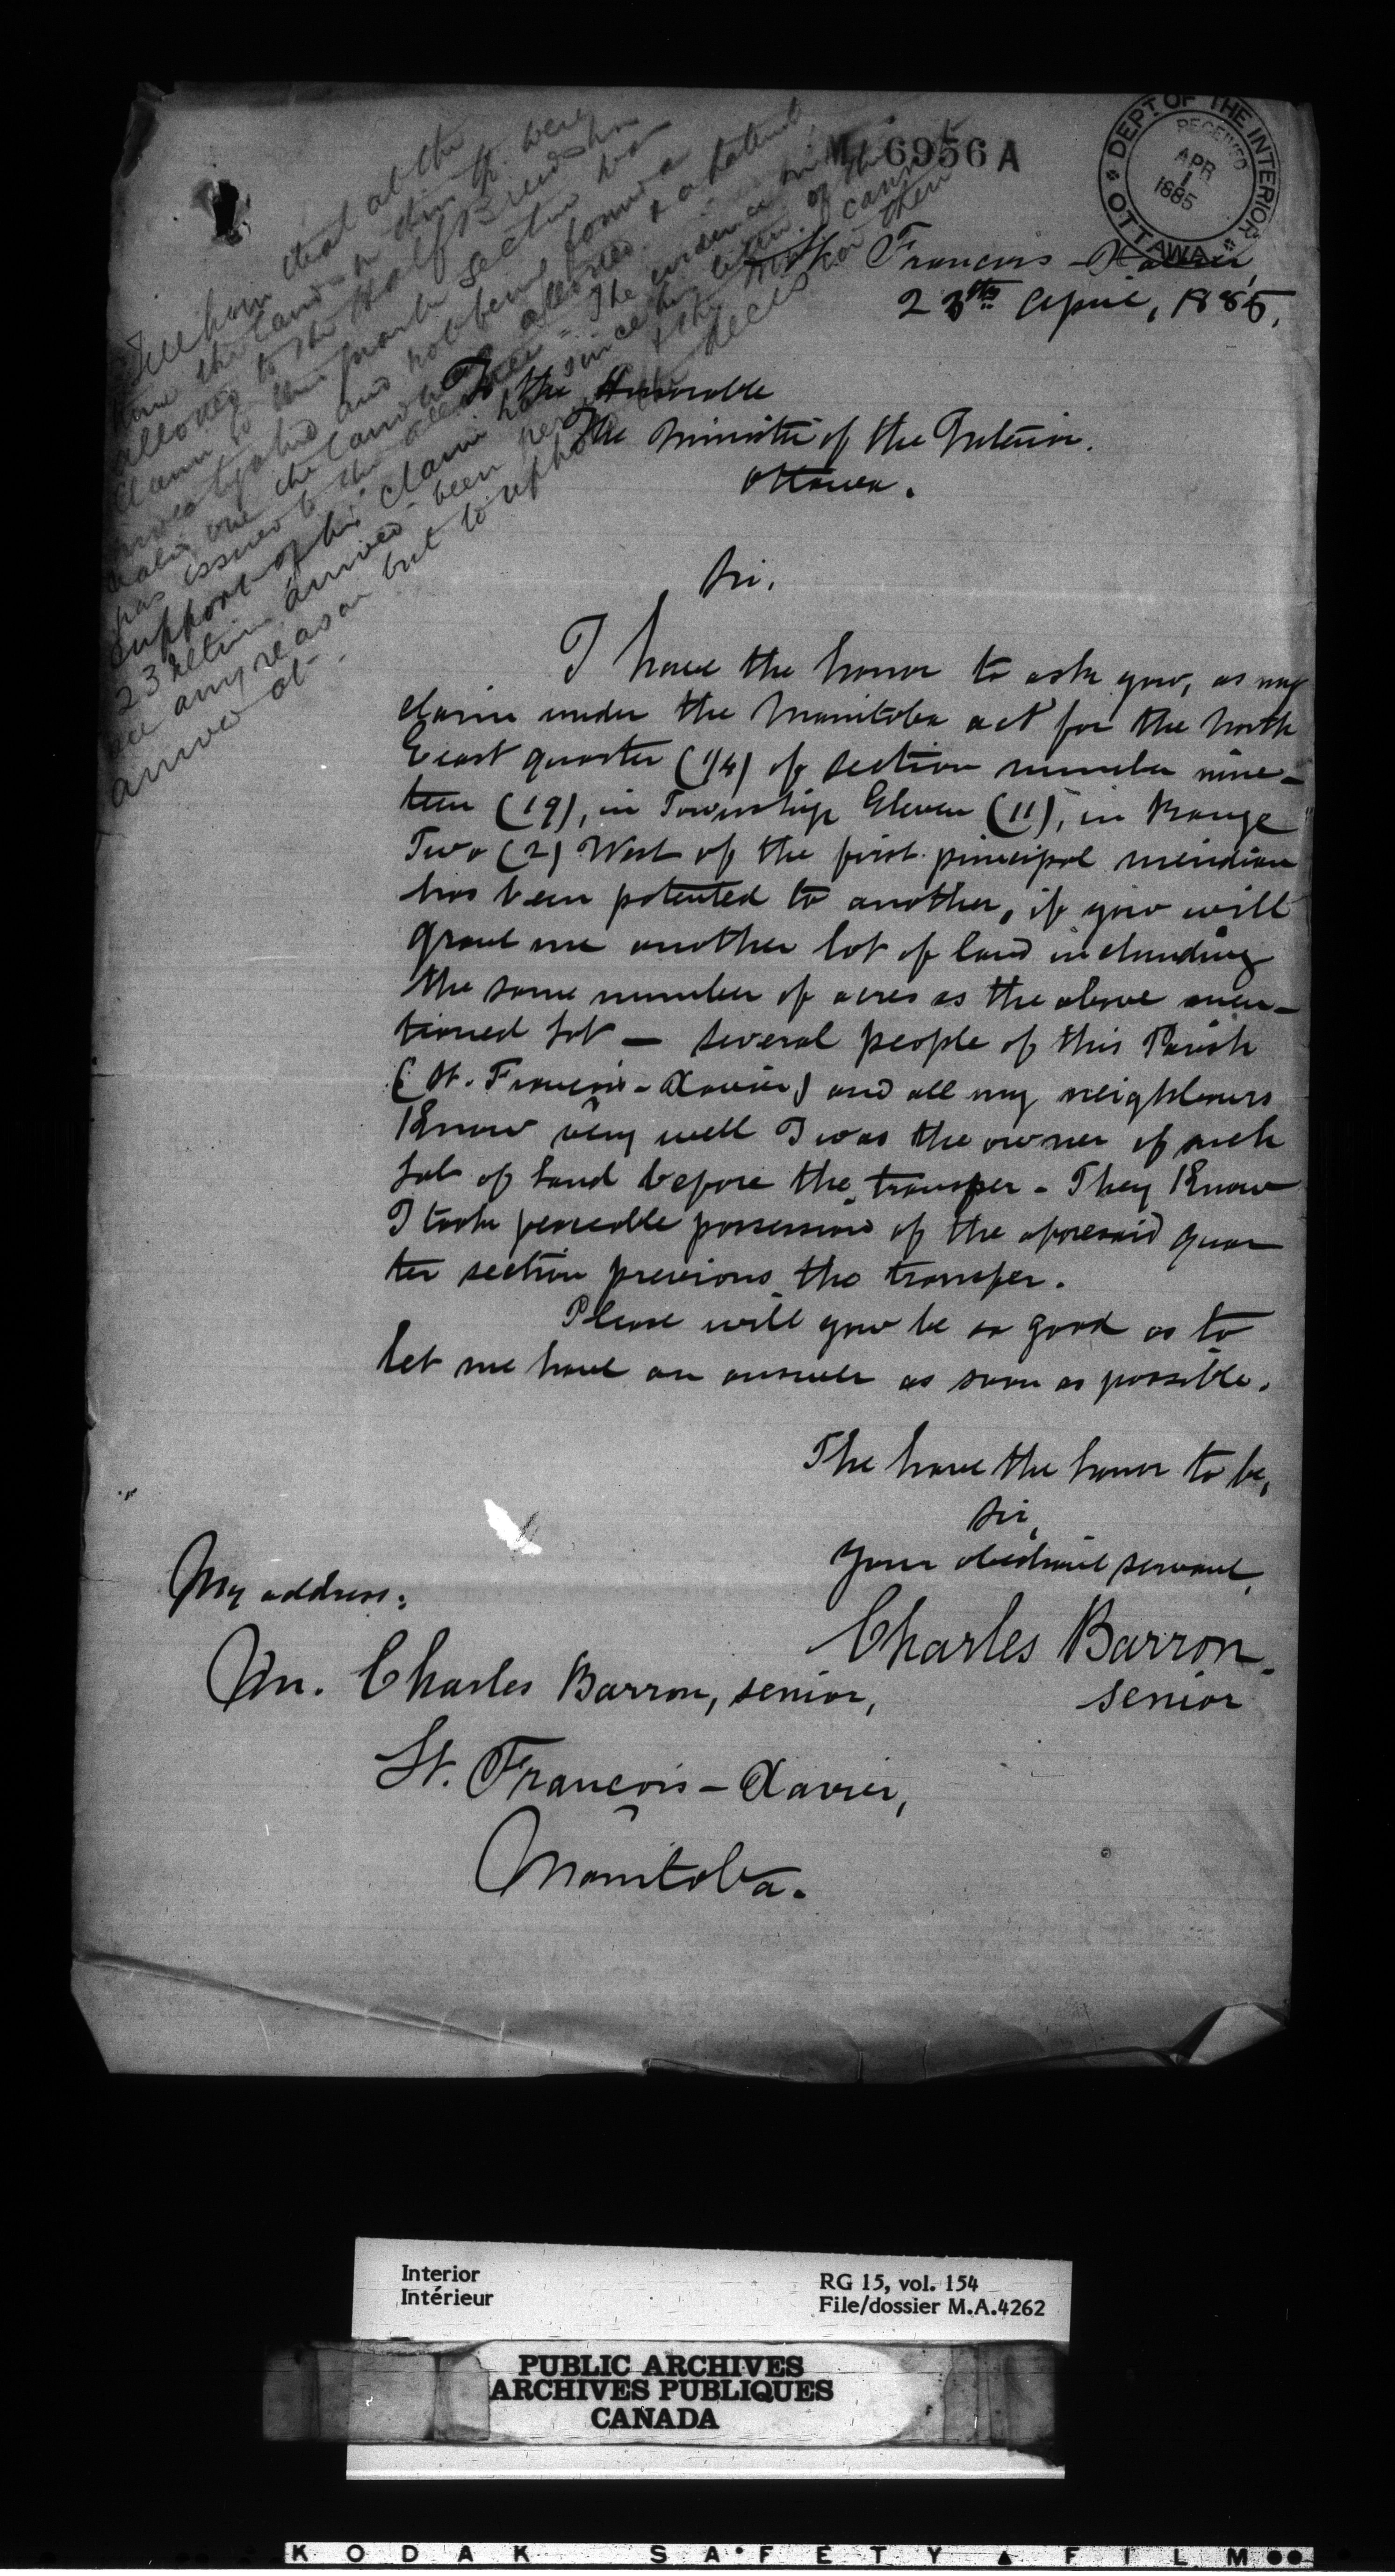 M 6956 A
DEPT OF THE INTERIOR
RECEIVED
APR
1
1885
OTTAWA
St. François-Xavier,
23th April, 1885.
To the Honorable
The Minister of the Interior.
Ottawa.
Sir,
I have the honor to ask you, as my
claim under the Manitoba act for the North
East quarter (1/4) of section number nine-
teen (19), in Township Eleven (11), in Range
Two (2) West of the first principal meridian
has been patented to another, if you will
grant me another lot of land inclunding
the same number of acres as the above men-
tioned lot — Several people of this Parish
(St. François-Xavier) and all my neighbours
Know very well I was the owner of such
lot of land before the transfer - They Know
I took peaceable possession of the aforesaid quar
ter section previous the transfer.
Please will you be so good as to
let me have an answer as soon as possible.
The have the honor to be,
Sir,
Your obedient servant,
Charles Barron.
senior
My address:
Mr. Charles Barron, senior,
St. François-Xavier,
Manitoba.
Tell him that at the
time the lands in this Tp were
allotted to the Half Breeds his
claim to this quarter section was
investigated and not being found a
valid one the land was allotted & a patent
has issued to the allottee - The evidence in
support of his claim has since his letter of the
23 ultimo arrived been perused & the Min cannot
see any reason but to uphold the decision then
arrived at -
Interior
Intérieur
RG 15, vol. 154
File/dossier M.A.4262
PUBLIC ARCHIVES
ARCHIVES PUBLIQUES
CANADA
KODAK SAFETY FILM